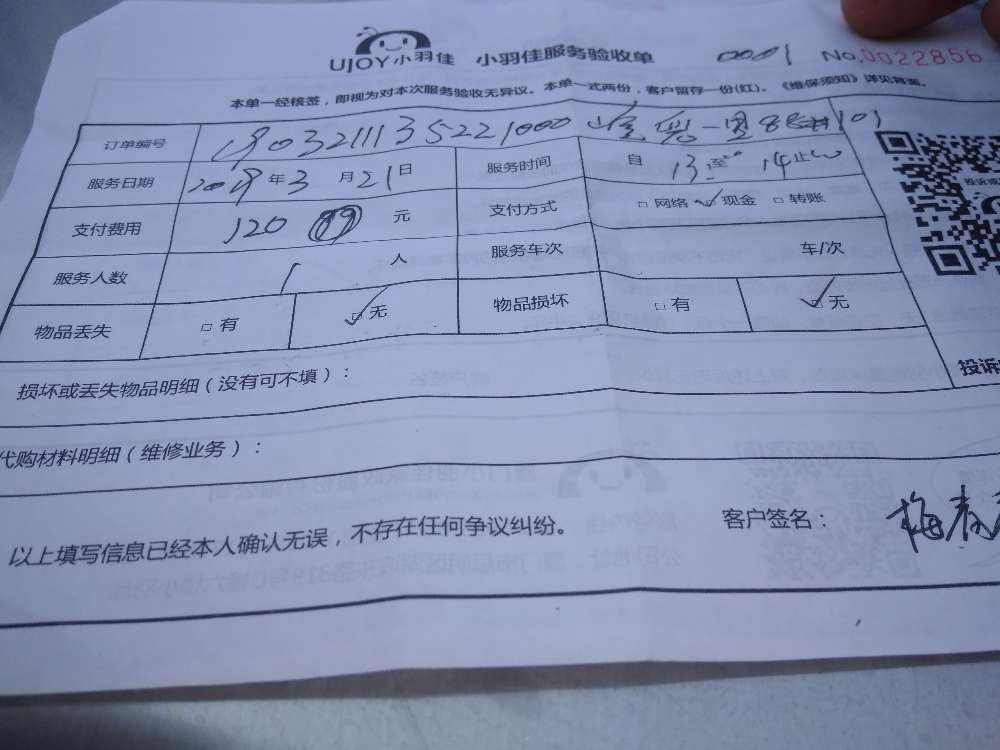 UJOY小羽佳 小羽佳服务验收单 0001 No.0022856
本单一经核签，即视为对本次服务验收无异议。本单一式两份，客户留存一份(红)。《维保须知》详见背面。
订单编号 190321113522221000 101
服务日期 2019年3月21日 服务时间 自 13 至 14 止
支付费用 120 元 支付方式 □ 网络 ✓ 现金 □ 转账
服务人数 1 人 服务车次 车/次
物品丢失 □ 有 ✓ 无 物品损坏 □ 有 ✓ 无
投诉
损坏或丢失物品明细（没有可不填）：
代购材料明细（维修业务）：
以上填写信息已经本人确认无误，不存在任何争议纠纷。 客户签名： 梅春